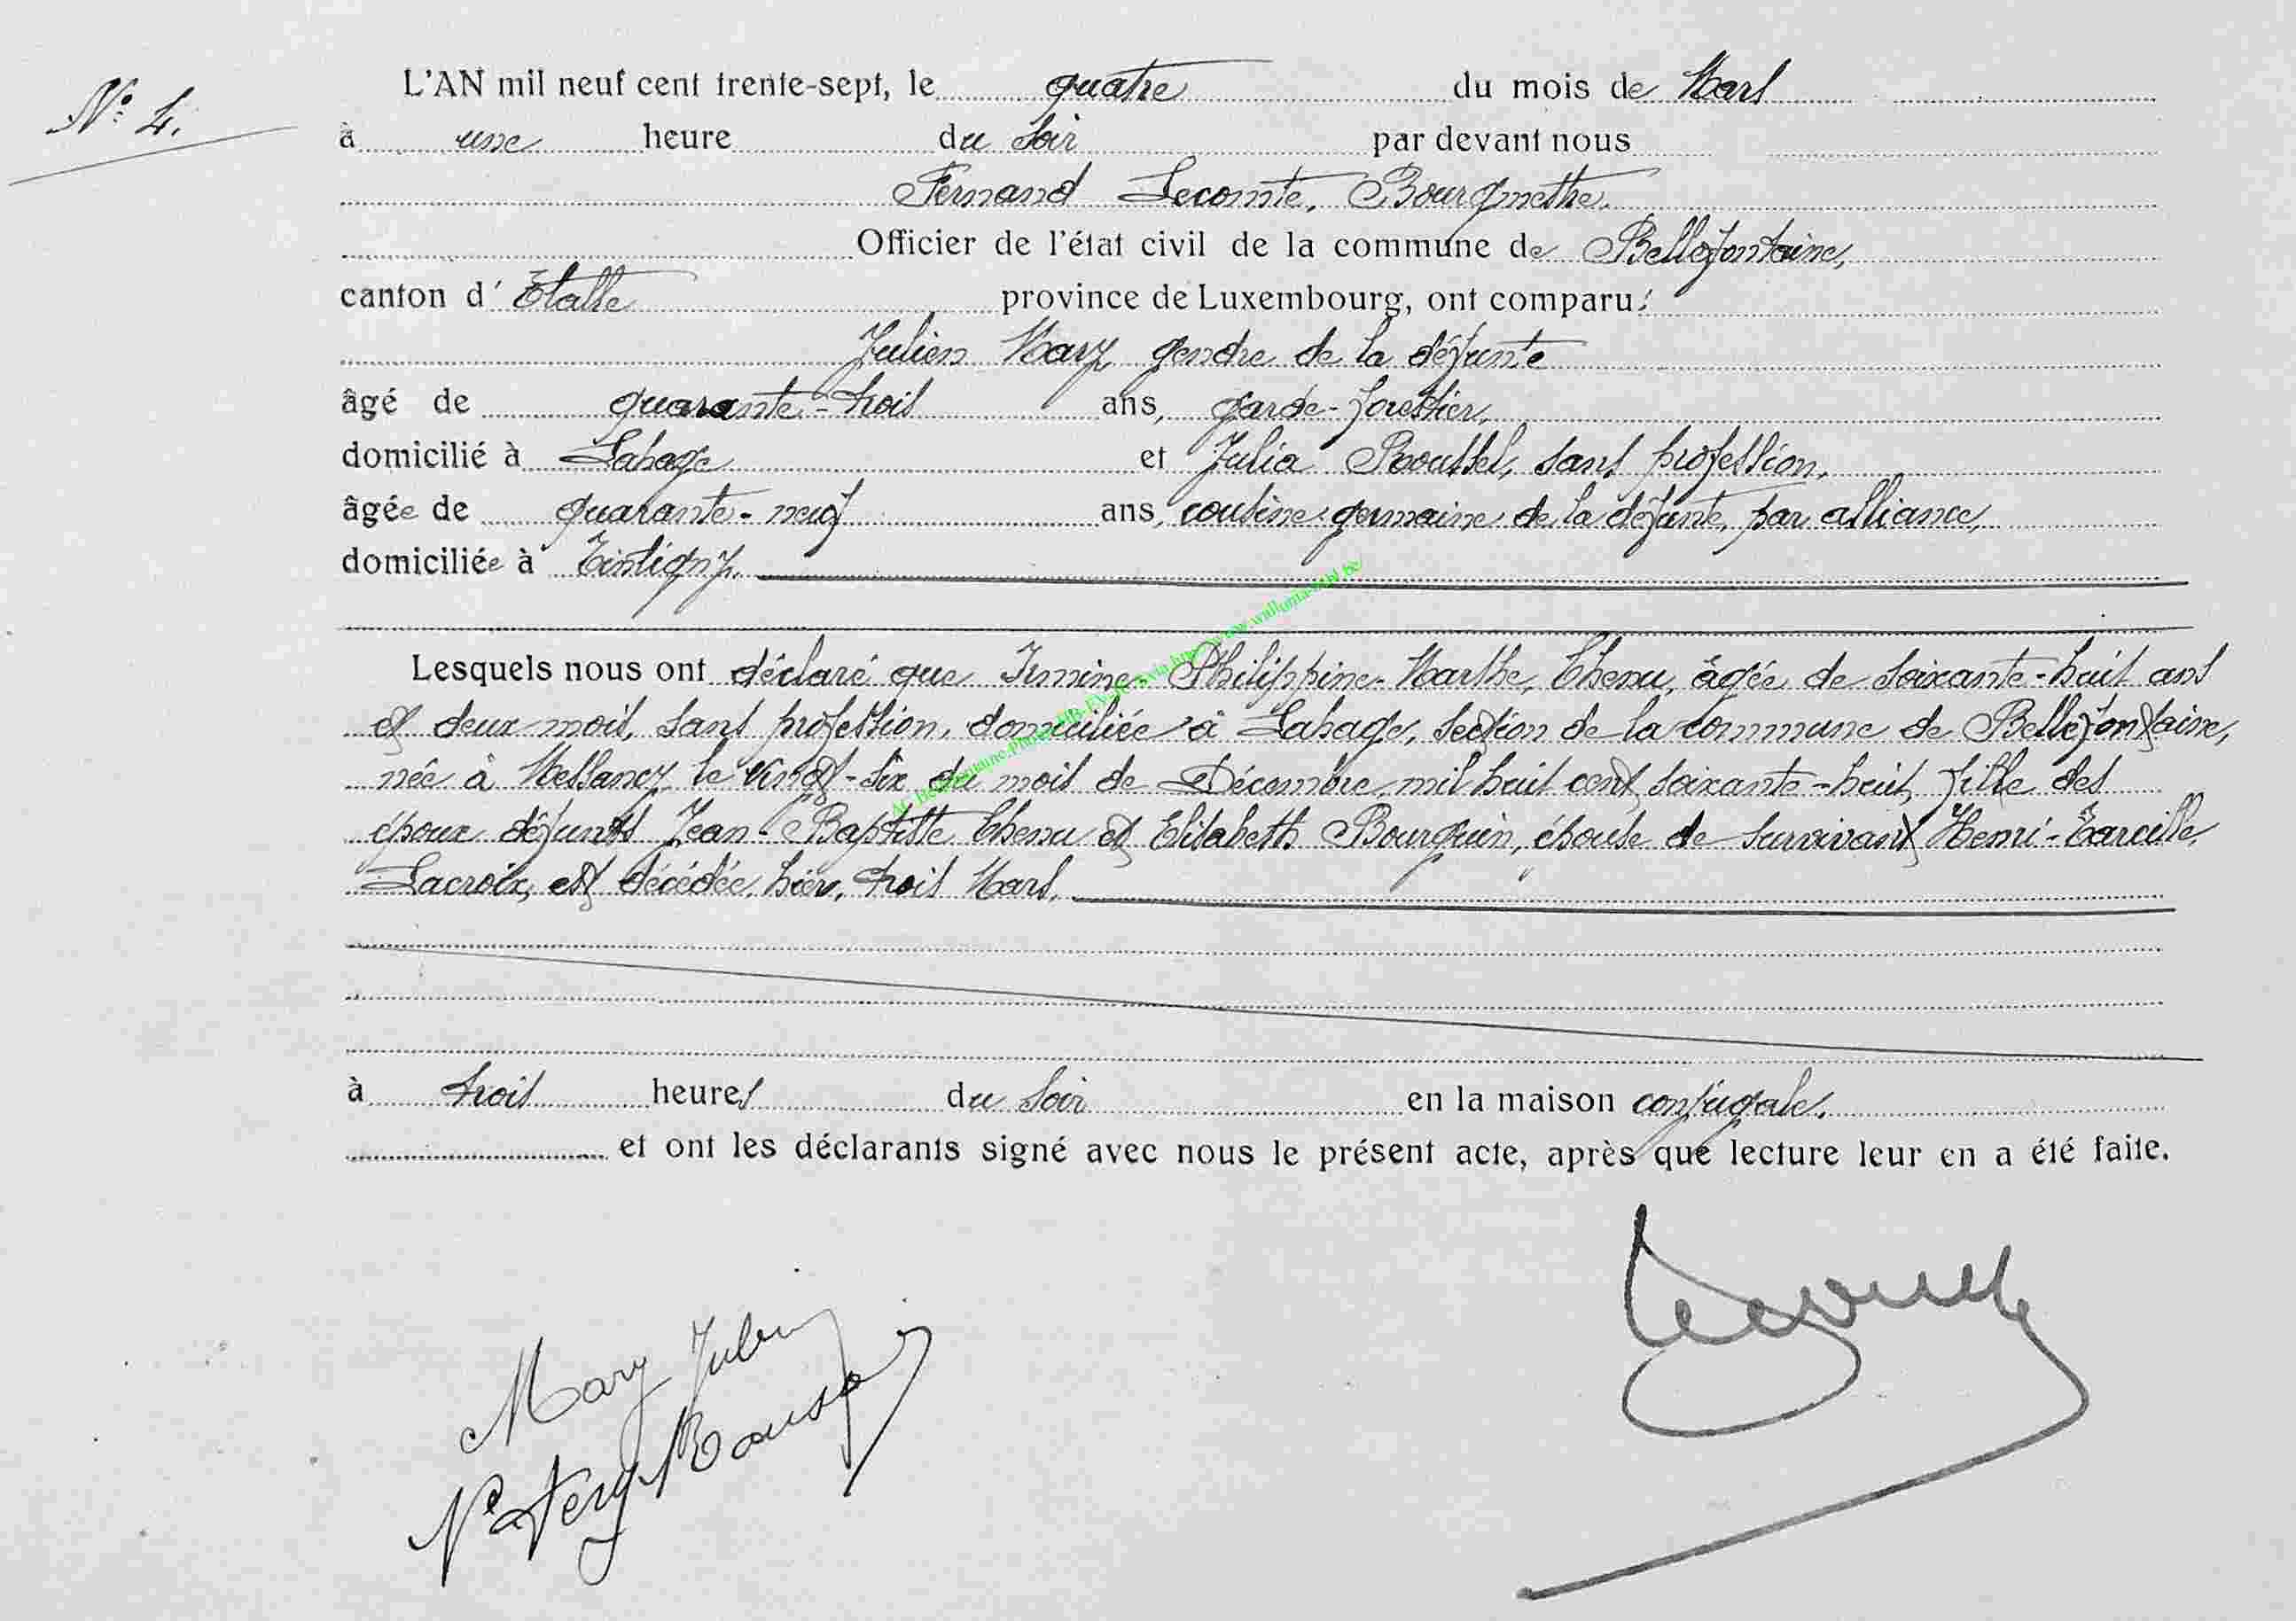 N° 4.
L'AN mil neuf cent trente-sept, le quatre du mois de Mars
à une heure du soir par devant nous
Fernand Lecomte, Bourgmestre,
Officier de l'état civil de la commune de Bellefontaine,
canton d' Etalle province de Luxembourg, ont comparu:
Julien Mary gendre de la défunte
âgé de quarante-trois ans, garde-forestier,
domicilié à Lahage et Julia Roussel, sans profession,
âgée de quarante-neuf ans, cousine germaine de la défunte, par alliance,
domiciliée à Tintigny.
Lesquels nous ont déclaré que Irmine-Philippine-Marthe, Chenu, âgée de soixante-huit ans
et deux mois, sans profession, domiciliée à Lahage, section de la commune de Bellefontaine,
née à Messancy le vingt-six du mois de Décembre mil huit cent soixante-huit, fille des
époux défunts Jean-Baptiste Chenu et Elisabeth Bourguin, épouse de survivant Henri-Tarcille,
Lacroix, est décédée, hier, trois Mars.
à trois heures du soir en la maison conjugale.
et ont les déclarants signé avec nous le présent acte, après que lecture leur en a été faite.
Mary Julien
Lecomte